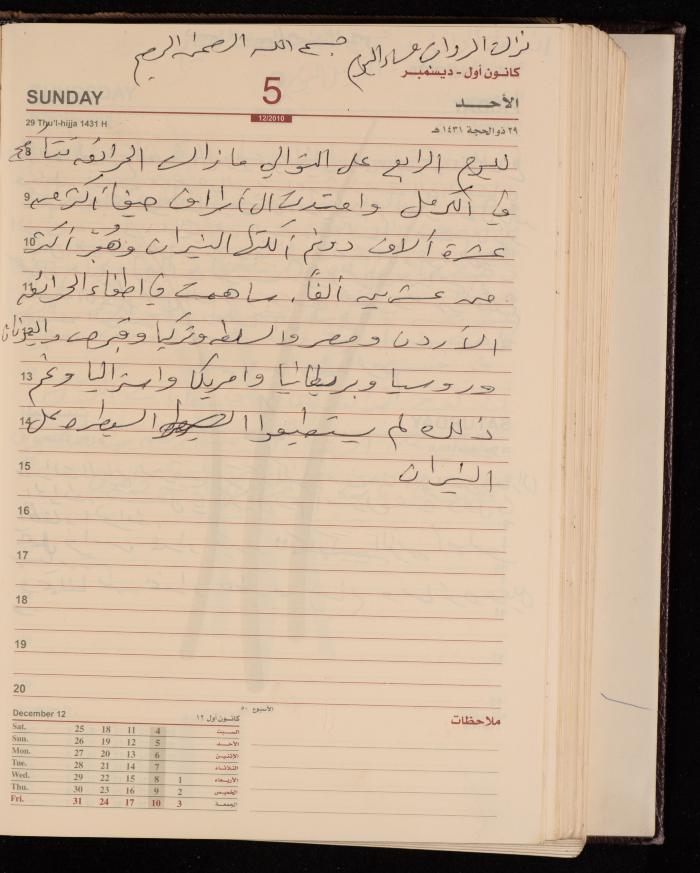 بسم الله الرحمن الرحيم
نزلت الروان مساء اليوم
كانون أول - ديسمبر
SUNDAY
5
الأحد
12/2010
29 Thu'l-hijja 1431 H
٢٩ ذو الحجة ١٤٣١ هـ
لليوم الرابع على التوالي ما زالت الحرائق
8
في الكرمل وامتدت إلى حيفا أكثر من
9
عشرة آلاف دونم أكلتها النيران وهُجّر أكثر
10
من عشرين ألفاً. ساهمت في اطفاء الحرائق
11
الأردن ومصر والسلطه وتركيا وقبرص واليونان
12
وروسيا وبريطانيا وامريكا واستراليا ورغم
13
ذلك لم يستطيعوا السيطره على
14
النيران
15
16
17
18
19
20
December 12
كانون أول ١٢
الأسبوع ٥٠
ملاحظات
Sat. 25 18 11 4 السبت
Sun. 26 19 12 5 الأحد
Mon. 27 20 13 6 الإثنين
Tue. 28 21 14 7 الثلاثاء
Wed. 29 22 15 8 1 الأربعاء
Thu. 30 23 16 9 2 الخميس
Fri. 31 24 17 10 3 الجمعة